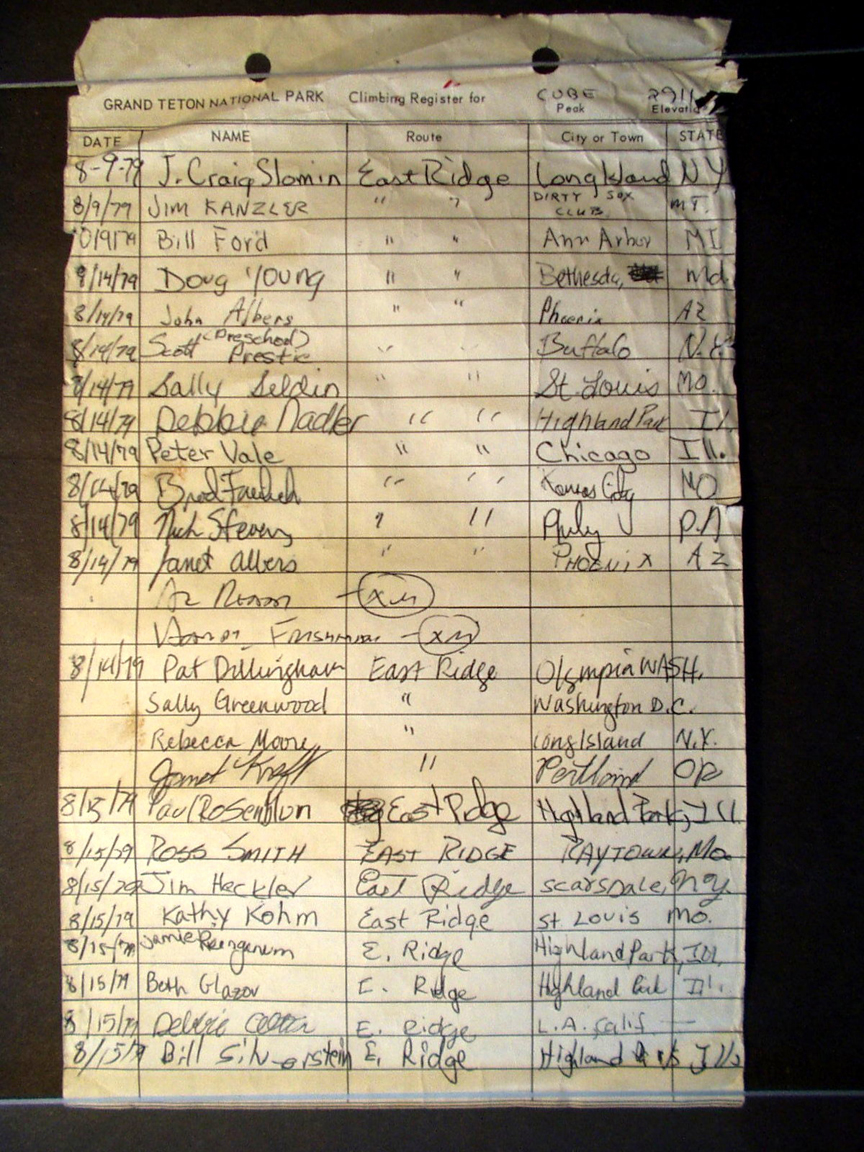 GRAND TETON NATIONAL PARK Climbing Register for CUBE Peak Elevatio
DATE NAME Route City or Town STATE
8-9-79 J. Craig Slomin East Ridge Long Island NY
8/9/79 JIM KANZLER " " DIRTY SOX CLUB MT.
0/9/79 Bill Ford " " Ann Arbor MI
8/14/79 Doug Young " " Bethesda, Md.
8/14/79 John Albers " " Phoenix AZ
8/14/79 Scott (Preschool) Prestie " " Buffalo N.Y.
8/14/79 Sally Seldin " " St. Louis MO.
8/14/79 Debbie Nadler " " Highland Park Il.
8/14/79 Peter Vale " " Chicago Ill.
8/14/79 Brad " " Kansas City MO
8/14/79 Nick Stevens " " Phily PA
8/14/79 Janet Albers " " PHOENIX AZ
8/14/79 Pat Dillingham East Ridge Olympia WASH.
Sally Greenwood " Washington D.C.
Rebecca Moore " Long Island N.Y.
Janet Kraft " Portland OR
8/15/79 Paul Rosenblum East Ridge Highland Park, Ill.
8/15/79 ROSS SMITH EAST RIDGE RAYTOWN, Mo.
8/15/79 Jim Heckler East Ridge Scarsdale, N.Y.
8/15/79 Kathy Kohm East Ridge St. Louis Mo.
8/15/79 Jamie E. Ridge Highland Park, Ill.
8/15/79 Beth Glazov E. Ridge Highland Park Il.
8/15/79 Debbie E. Ridge L.A. Calif.
8/15/79 Bill Silverstein E. Ridge Highland Ill.